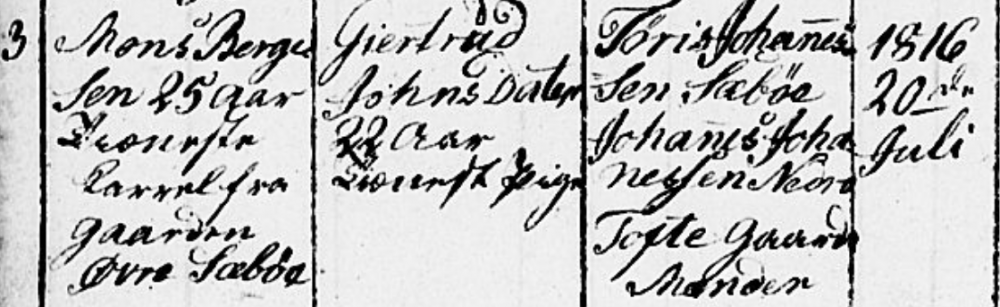 3
Mons Berge
sen 25 aar
Tieneste
Karrel fra
gaarden
Øvre Sæbøe
Giertrud
Johns Dater
22 Aar
Tienest Pige
Joris Johannes
sen Sæbøe
Johanes Joha
nessen Nedre
Tofte Gaard
Mænder
1816
20de
Juli